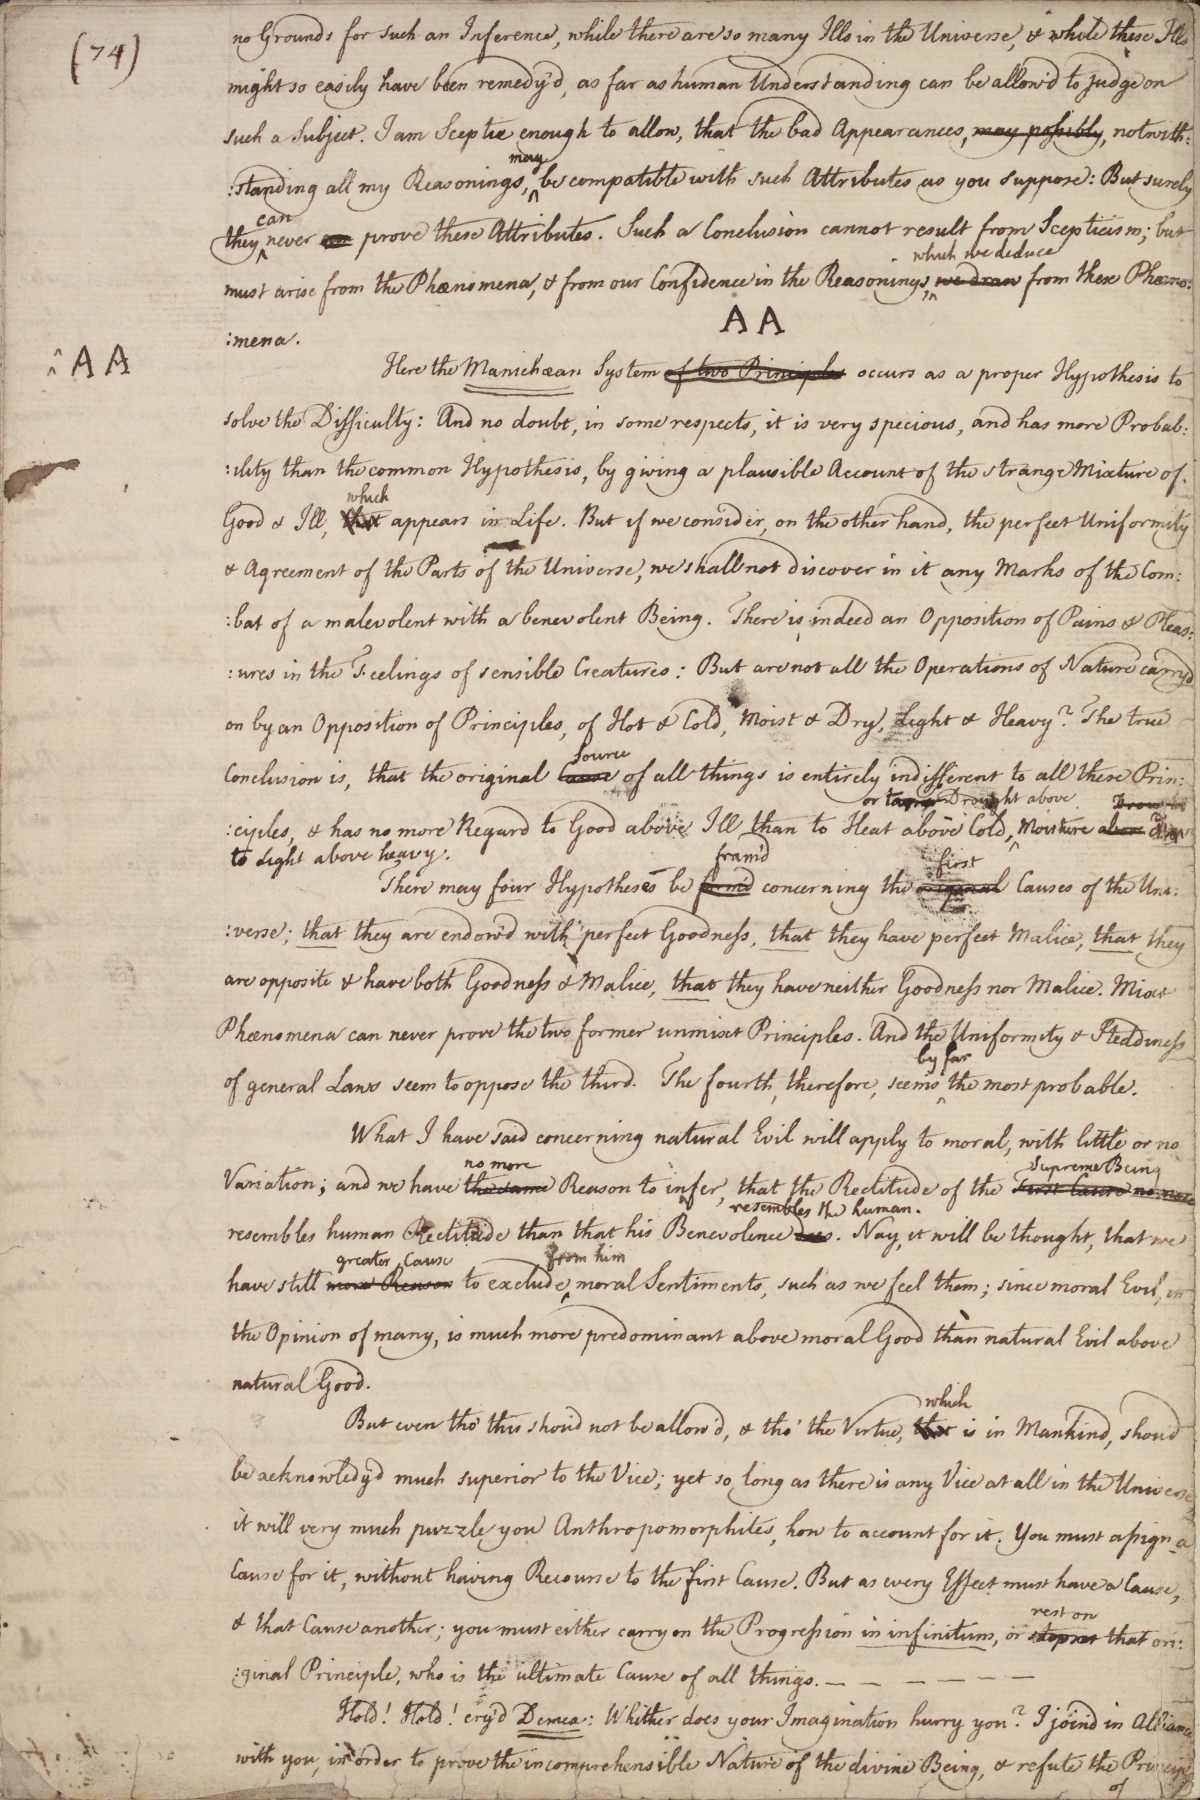 (74)
no Grounds for such an Inference, while there are so many Ills in the Universe, & while these Ills
might so easily have been remedy'd, as far as human Understanding can be allow'd to judge on
such a Subject. I am Sceptic enough to allow, that the bad Appearances, may possibly, notwith:
may
:standing all my Reasonings, ^ be compatible with such Attributes as you suppose: But surely
can
they ^ never can prove these Attributes. Such a Conclusion cannot result from Scepticism; but
which we deduce
must arise from the Phænomena, & from our Confidence in the Reasonings, ^ we draw from these Phæno:
:mena.
AA
^AA
Here the Manichæan System of two Principles occurs as a proper Hypothesis to
solve the Difficulty: And no doubt, in some respects, it is very specious, and has more Probab:
:ility than the common Hypothesis, by giving a plausible Account of the strange Mixture of
which
Good & Ill, that appears in Life. But if we consider, on the other hand, the perfect Uniformity
& Agreement of the Parts of the Universe, we shall not discover in it any Marks of the Com:
:bat of a malevolent with a benevolent Being. There is indeed an Opposition of Pains & Pleas:
:ures in the Feelings of sensible Creatures: But are not all the Operations of Nature carry'd
on by an Opposition of Principles, of Hot & Cold, Moist & Dry, Light & Heavy? The true
source
Conclusion is, that the original Cause of all things is entirely indifferent to all these Prin:
or to Drought above
:ciples, & has no more Regard to Good above Ill than to Heat above Cold, ^ Moisture above
to Light above heavy.
fram'd first
There may four Hypotheses be form'd concerning the original Causes of the Uni:
:verse; that they are endow'd with perfect Goodness, that they have perfect Malice, that they
are opposite & have both Goodness & Malice, that they have neither Goodness nor Malice. Mixt
Phænomena can never prove the two former unmixt Principles. And the Uniformity & Steddiness
by far
of general Laws seem to oppose the third. The fourth, therefore, seems ^ the most probable.
What I have said concerning natural Evil will apply to moral, with little or no
no more Supreme Being
Variation; and we have the same Reason to infer, that the Rectitude of the First Cause no more
resembles the human.
resembles human Rectitude than that his Benevolence does. Nay, it will be thought, that we
greater Cause from him
have still more Reason to exclude ^ moral Sentiments, such as we feel them; since moral Evil, in
the Opinion of many, is much more predominant above moral Good than natural Evil above
natural Good.
which
But even tho' this shou'd not be allow'd, & tho' the Virtue, that is in Mankind, shou'd
be acknowledg'd much superior to the Vice; yet so long as there is any Vice at all in the Universe
it will very much puzzle you Anthropomorphites, how to account for it. You must assign a
Cause for it, without having Recourse to the first Cause. But as every Effect must have a Cause,
rest on
& that Cause another; you must either carry on the Progression in infinitum, or stop at that ori:
:ginal Principle, who is the ultimate Cause of all things. — — — — —
Hold! Hold! cry'd Demea: Whither does your Imagination hurry you? I join'd in Alliance
with you, in order to prove the incomprehensible Nature of the divine Being, & refute the Principles
of